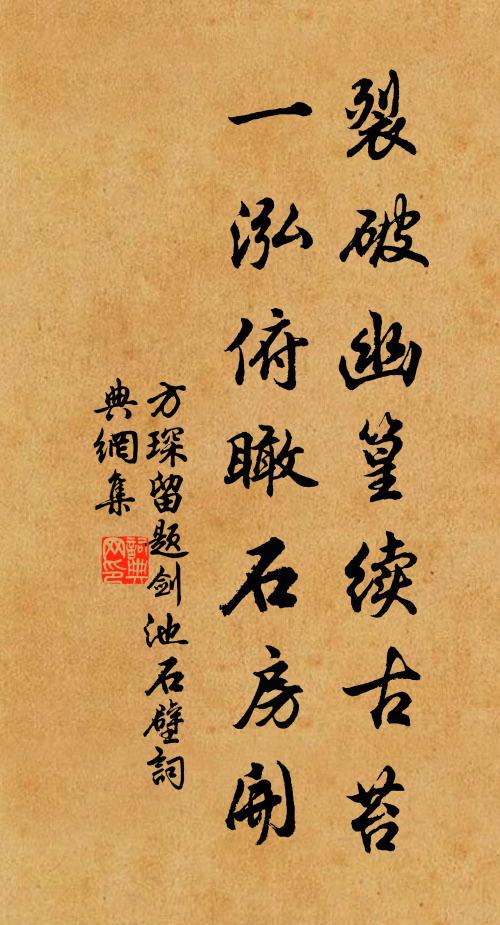 裂破幽篁续古苔
一泓俯瞰石房開
方琛留题剑池石壁詞
典網集
詞典
网印